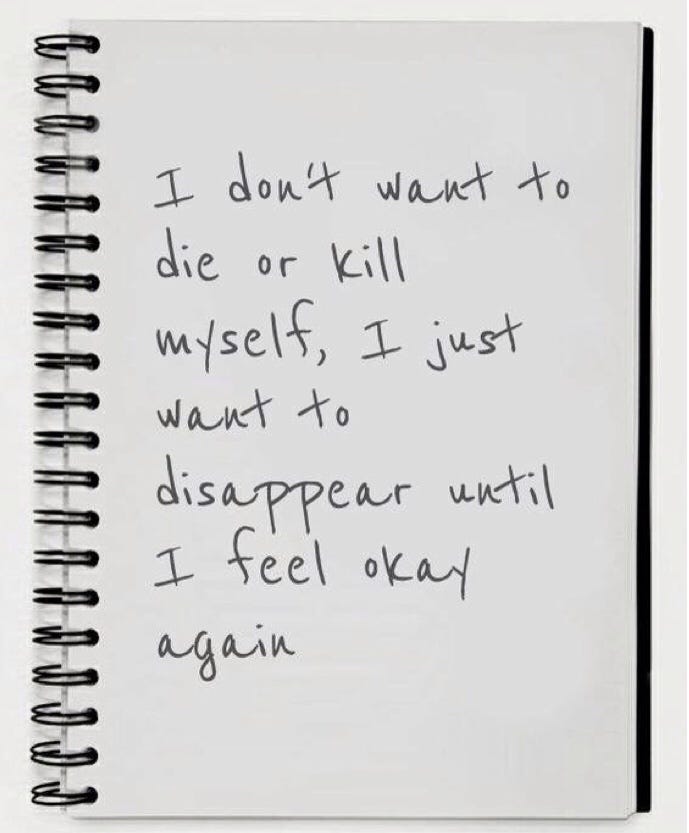 I don't want to
die or kill
myself, I just
want to
disappear until
I feel okay
again